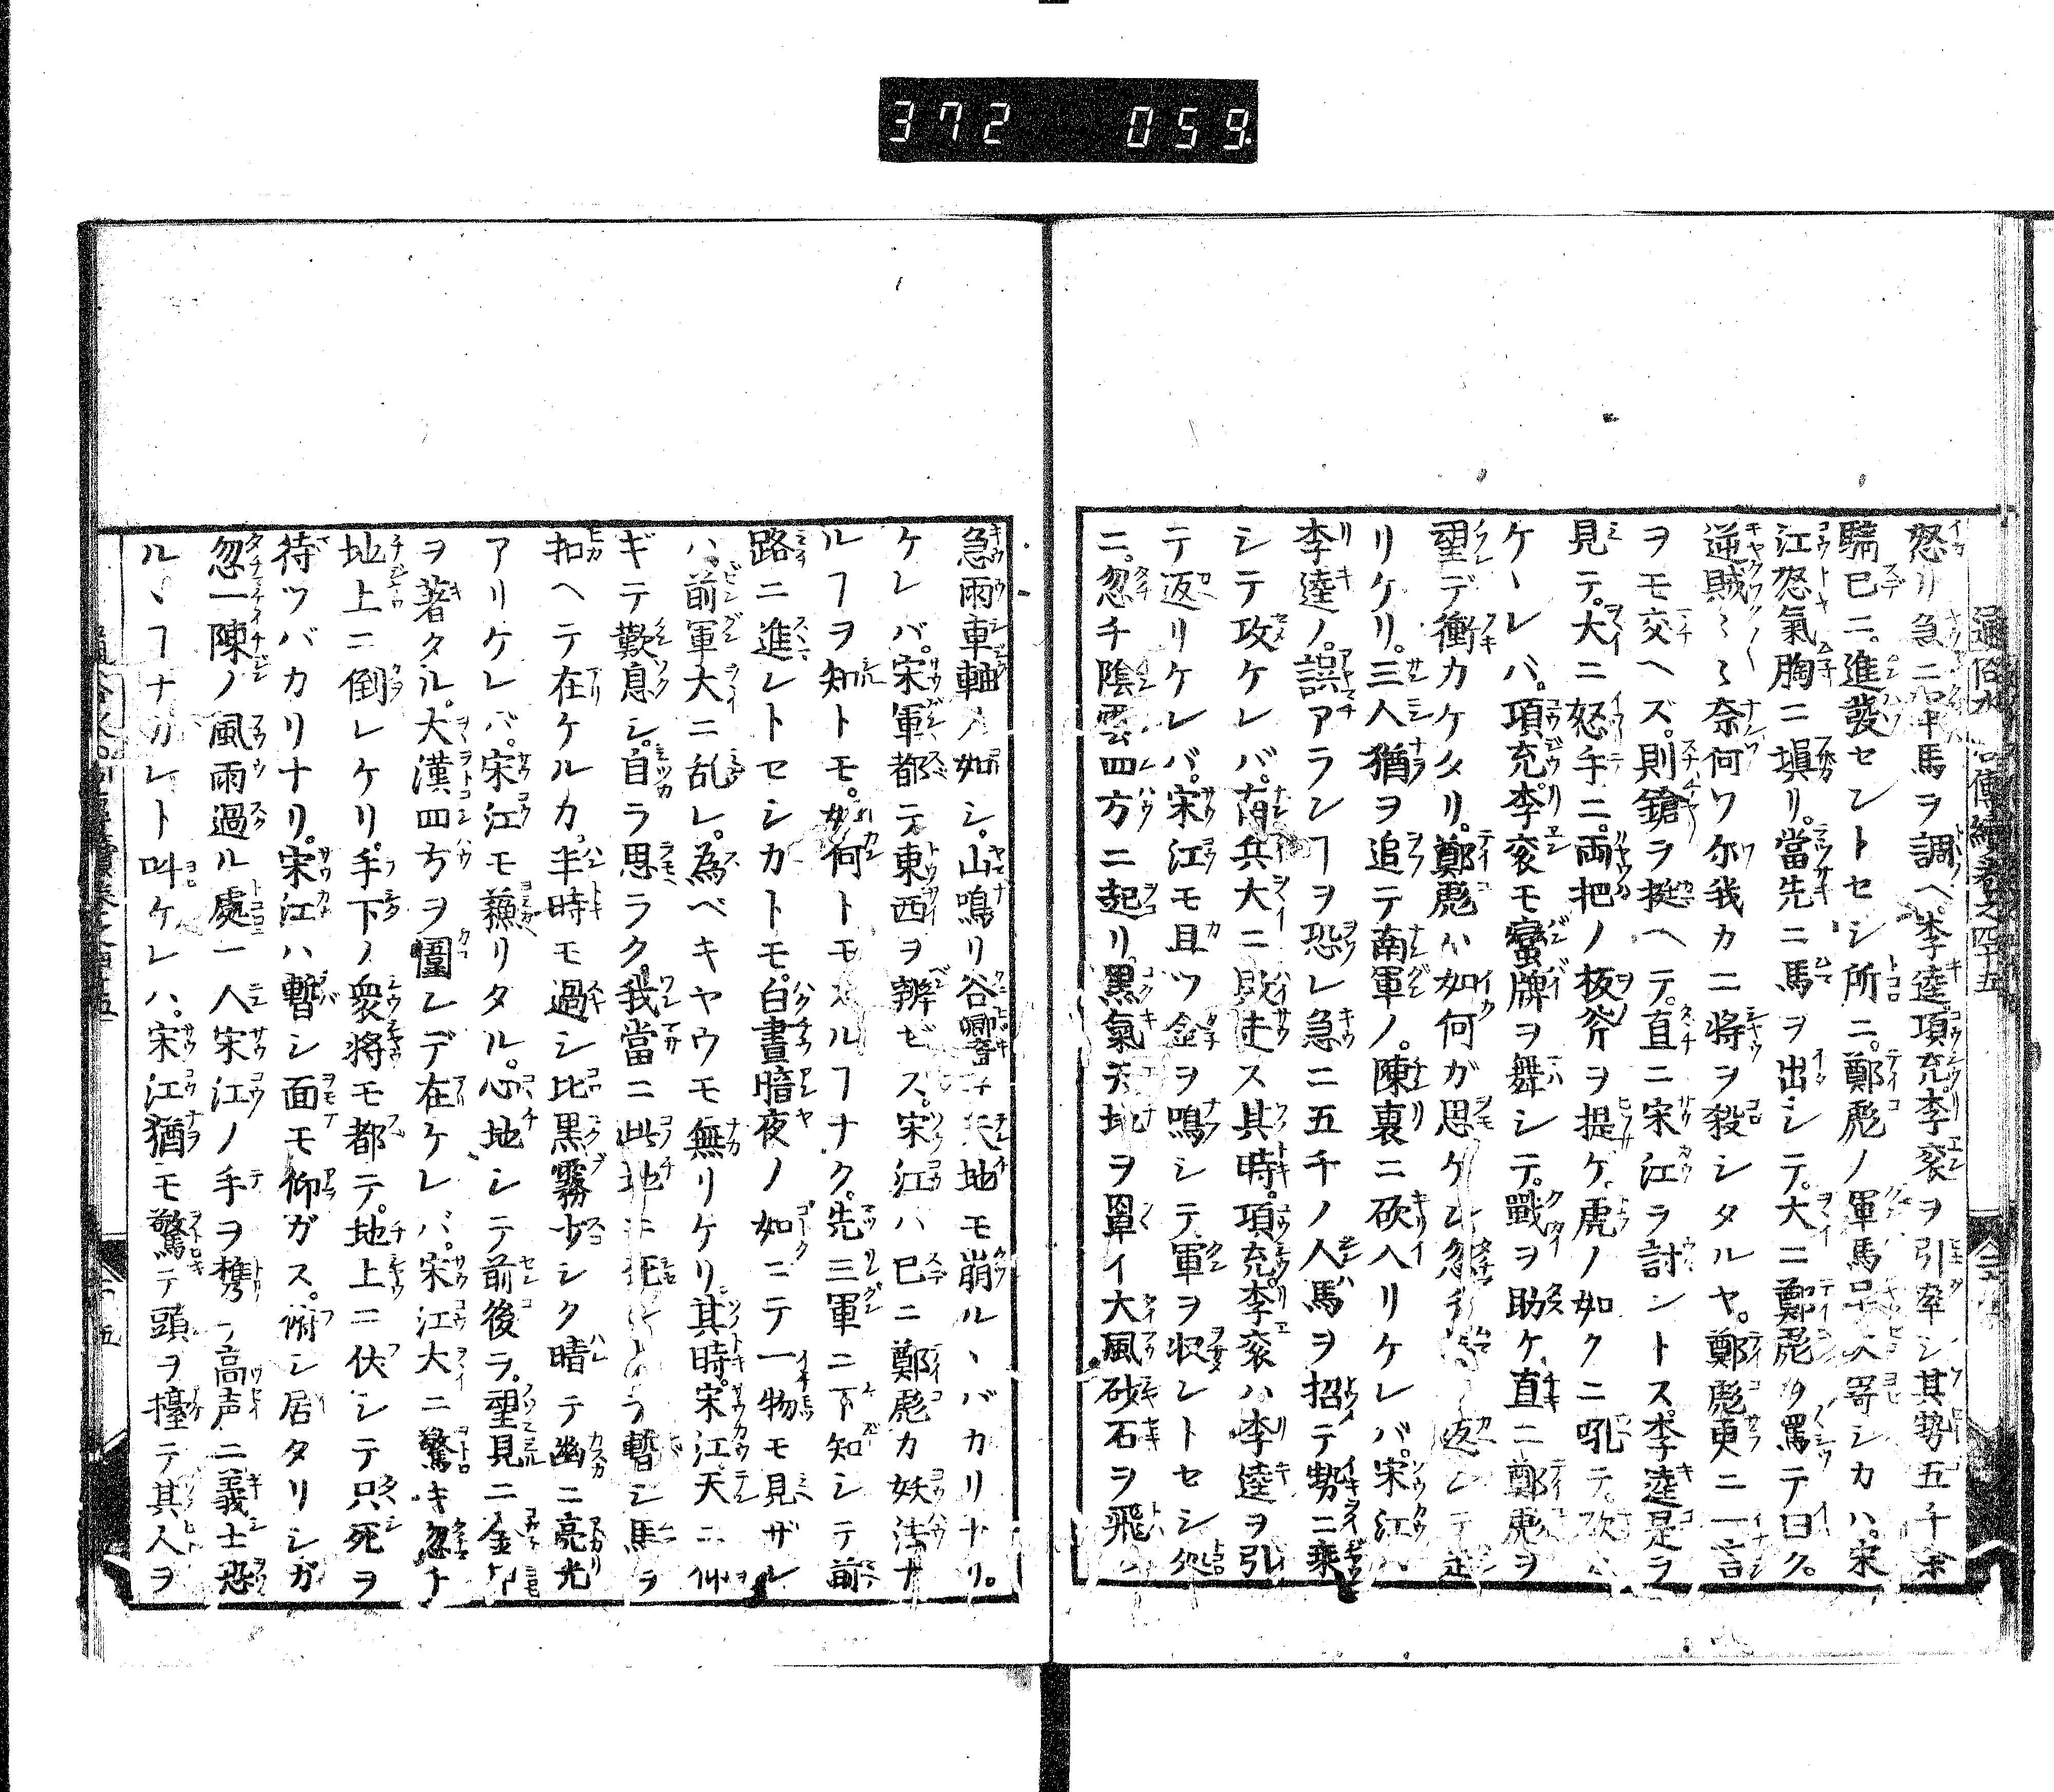 372 059
怒リ急ニ軍馬ヲ調ヘ。李逵項充李袞ヲ引率シ其勢五千余
騎已ニ。進發セントセシ所ニ。鄭彪ノ軍馬早ク寄シカハ。宋
江怒氣胸ニ塡リ。當先ニ馬ヲ出シテ。大ニ鄭彪ヲ罵テ曰ク。
逆賊〻〻奈何ソ尓我カ二將ヲ殺シタルヤ。鄭彪更ニ一言
ヲモ交ヘズ。則鎗ヲ挺ヘテ。直ニ宋江ヲ討ントス。李逵是ヲ
見テ。大ニ怒手ニ。兩把ノ板斧ヲ提ゲ。虎ノ如クニ吼テ。
ケヽレバ。項充李袞モ蠻牌ヲ舞シテ。戰ヲ助ケ。直ニ鄭彪ヲ
望デ衝カケタリ。鄭彪ハ如何ガ思ケン忽チ 返シテ走
リケリ。三人猶ヲ追テ南軍ノ。陳裏ニ砍入リケレバ。宋江ハ
李逵ノ。誤アランヿヲ恐レ急ニ五千ノ人馬ヲ招テ勢ニ乘
シテ攻ケレバ。南兵大ニ敗走ス其時。項充李袞ハ李逵ヲ引
テ返リケレバ。宋江モ且ツ金ヲ鳴シテ軍ヲ収ントセシ処
ニ。忽チ陰雲四方ニ起リ。黒氣天地ヲ罩イ大風砂石ヲ飛ハ
急雨車軸ノ如シ。山鳴リ谷響キ天地モ崩ルヽバカリナリ。
ケレバ。宋軍都テ東西ヲ辨ゼス。宋江ハ已ニ鄭彪カ妖法ナ
ルヿヲ知トモ。如何トモスルヿナク。先三軍ニ下知シテ前
路ニ進ントセシカトモ。白晝暗夜ノ如ニテ一物モ見ザレ
ハ。前軍大ニ乱レ。為ベキヤウモ無リケリ。其時。宋江。天ニ仰
ギテ歎息シ。自ラ思ラク。我當ニ此地ニ死 暫シ馬ヲ
扣ヘテ在ケルカ。半時モ過シ比黒霧少シク晴テ幽ニ亮光
アリケレバ。宋江モ蘇リタル。心地シテ前後ヲ。望見ニ金
ヲ著タル。大漢四方ヲ圍ンデ在ケレバ。宋江大ニ驚キ忽チ
地上ニ倒レケリ。手下ノ衆将モ都テ。地上ニ伏シテ只死ヲ
待ツバカリナリ。宋江ハ暫シ面モ仰ガス。俯シ居タリシガ
忽一陳ノ風雨過ル處一人宋江ノ手ヲ携テ高声ニ義士恐
ルヽヿナカレト叫ケレハ。宋江猶モ驚テ頭ヲ擡テ其人ヲ